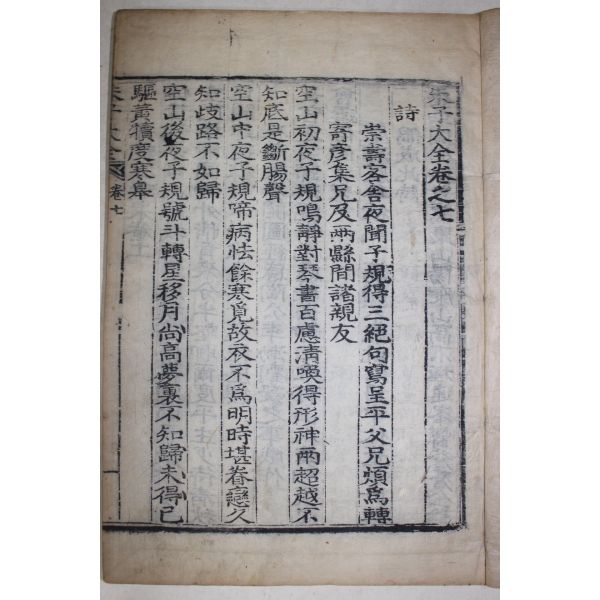 朱子大全卷之七
詩
崇壽客舍夜聞子規得三絶句寫呈平父兄煩爲轉
寄彦集兄及兩縣間諸親友
空山初夜子規鳴靜對琴書百慮清喚得形神兩超越不
知底是斷腸聲
空山中夜子規啼病怯餘寒覓故衣不爲明時堪眷戀久
知歧路不如歸
空山後夜子規號斗轉星移月尚高夢裏不知歸未得已
驅黃犢度寒皐
朱子大全 卷七 一